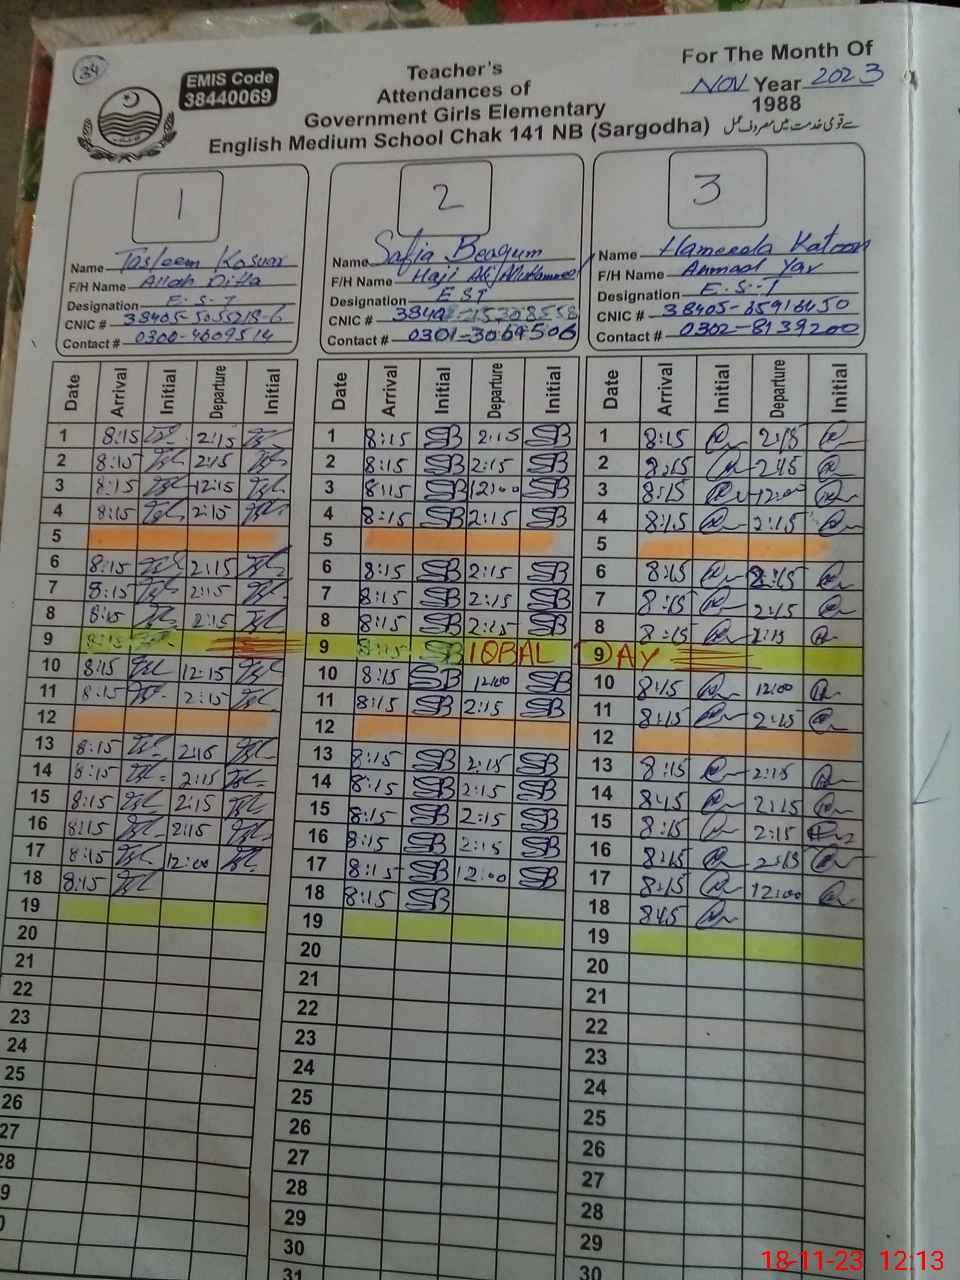 34
EMIS Code
38440069
Teacher's
Attendances of
Government Girls Elementary
English Medium School Chak 141 NB (Sargodha)
For The Month Of
NOV Year 2023
1988
1
Name Tasleem Kosuar
F/H Name Allah Ditta
Designation E.S.T
CNIC # 38405-5055218-6
Contact # 0300-4609514
2
Name Safia Beagum
F/H Name Haji
Designation EST
CNIC #
Contact # 0301-3069506
3
Name Hameeda Katoon
F/H Name Ahmad Yar
Designation E.S.T
CNIC # 38405-
Contact # 0302-8139200
Date Arrival Initial Departure Initial Date Arrival Initial Departure Initial Date Arrival Initial Departure Initial
1 8:15 2:15 1 8:15 SB 2:15 SB 1 8:15 2:15
2 8:15 2:15 2 8:15 SB 2:15 SB 2 8:15 2:15
3 8:15 12:15 3 8:15 SB 12:00 SB 3 8:15 12:00
4 8:15 2:15 4 8:15 SB 2:15 SB 4 8:15 2:15
5 5 5
6 8:15 2:15 6 8:15 SB 2:15 SB 6 8:15 2:15
7 8:15 2:15 7 8:15 SB 2:15 SB 7 8:15 2:15
8 8:15 2:15 8 8:15 SB 2:15 SB 8 8:15 2:15
9 8:15 9 8:15 SB IQBAL 9 DAY
10 8:15 12:15 10 8:15 SB 12:00 SB 10 8:15 12:00
11 8:15 2:15 11 8:15 SB 2:15 SB 11 8:15 2:15
12 12 12
13 8:15 2:15 13 8:15 SB 2:15 SB 13 8:15 2:15
14 8:15 2:15 14 8:15 SB 2:15 SB 14 8:15 2:15
15 8:15 2:15 15 8:15 SB 2:15 SB 15 8:15 2:15
16 8:15 2:15 16 8:15 SB 2:15 SB 16 8:15 2:15
17 8:15 12:00 17 8:15 SB 12:00 SB 17 8:15 12:00
18 8:15 18 8:15 SB 18 8:15
19 19 19
20 20 20
21 21 21
22 22 22
23 23 23
24 24 24
25 25 25
26 26 26
27 27 27
28 28 28
9 29 29
30 30
31
18-11-23 12:13